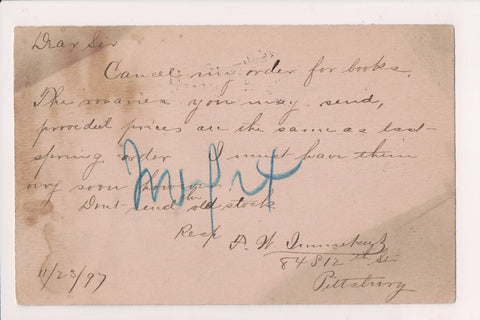 Dear Sir
Cancel my order for books.
The rosaries you may send,
provided prices are the same as last
spring order I must have them
very soon however
Dont send the old stock
Resp F. W.
84 S 12th St
Pittsburg
11/23/97